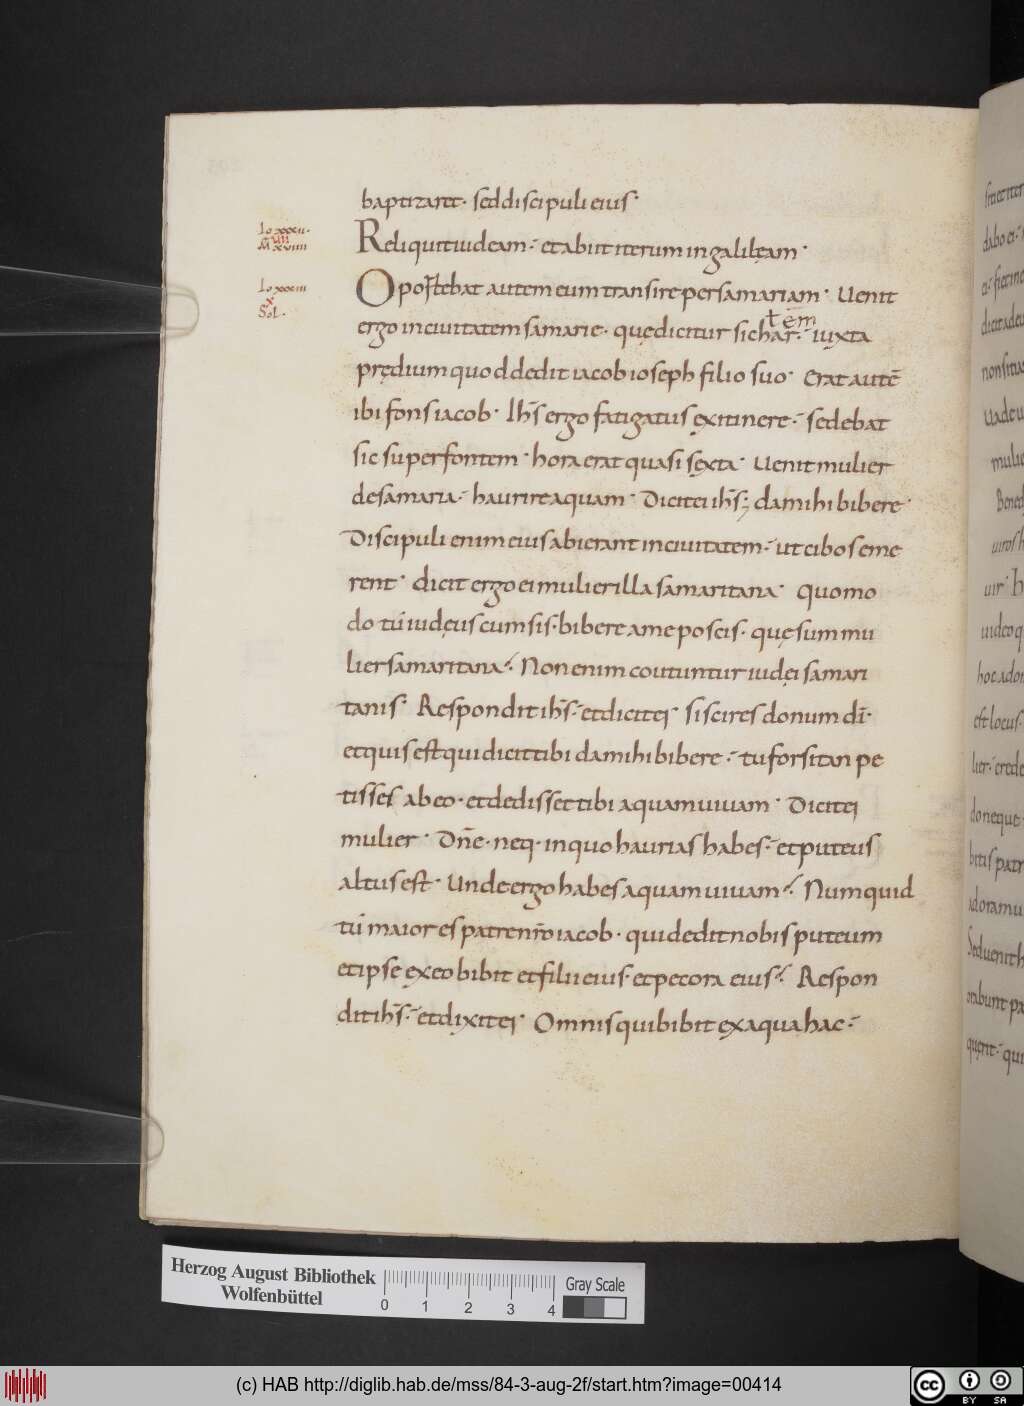 baptizaret· sed discipuli eius·
Io xxxii·
uii
M xxuiiii
Reliquit iudeam·́ et abiit iterum in galilęam·
Io xxxiii
x
Sol·
Oportebat autem eum transire per samariam· Uenit
tem
ergo in ciuitatem samarie· quę dicitur sichar·́ iuxta
prędium quod dedit iacob ioseph filio suo· Erat autē
ibi fons iacob· Ihs̄ ergo fatigatus ex itinere·́ sedebat
sic super fontem· hora erat quasi sexta· Uenit mulier
de samaria·́ haurire aquam· Dicit ei ihs̄; da mihi bibere·
Discipuli enim eius abierant in ciuitatem·́ ut cibos eme
rent· dicit ergo ei mulier illa samaritana· Quomo
do tú iudęus cum sis· bibere a me poscis· quę sum mu
lier samaritana·́ Non enim coutuntur iudęi samari
tanis· Respondit ihs̄·́ et dicit ei si scires donum dī·
et quis est qui dicit tibi da mihi bibere·́ tu forsitan pe
tisses ab eo· et dedisset tibi aquam uiuam· Dicit ei
mulier· Dn̄e· neq· in quo haurias habes·́ et puteus
altus est· Unde ergo habes aquam uiuam·́ Numquid
tú maior es patre nr̄o iacob· qui dedit nobis puteum
et ipse ex eo bibit et filii eius· et pecora eius·́ Respon
dit ihs̄·́ et dixit ei Omnis qui bibit ex aqua hac·́
Herzog August Bibliothek
Wolfenbüttel
0 1 2 3 4
Gray Scale
(c) HAB http://diglib.hab.de/mss/84-3-aug-2f/start.htm?image=00414
cc BY SA